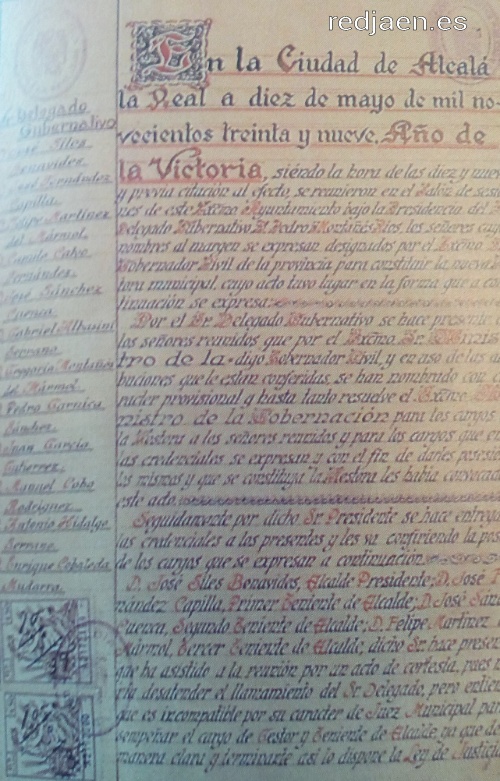 redjaen.es
En la Ciudad de Alcalá
la Real a diez de mayo de mil no-
vecientos treinta y nueve, Año de
la Victoria, siendo la hora de las diez y nueve
y previa citación al efecto, se reunieron en el Salón de sesio
nes de este Excmo Ayuntamiento bajo la Presidencia del
Delegado Gubernativo D. Pedro Montañés los señores cuyos
nombres al margen se expresan, designados por el Excmo
Gobernador Civil de la provincia para constituir la nueva
tora municipal, cuyo acto tuvo lugar en la forma que a con
tinuación se expresa.
Por el Sr. Delegado Gubernativo se hace presente
los señores reunidos que por el Excmo Sr. Minis
tro de la - digo Gobernador Civil, y en uso de las atri
buciones que le están conferidas, se han nombrado con ca
racter provisional y hasta tanto resuelve el Excmo
nistro de la Gobernación para los cargos
la Gestora a los señores reunidos y para los cargos que en
las credenciales se expresan y con el fin de darles posesión
los mismos y que se constituya la Gestora les había convocado
este acto.
Seguidamente por dicho Sr. Presidente se hace entrega
las credenciales a los presentes y les va confiriendo la pose
de los cargos que se expresan a continuación
D. José Siles Benavides, Alcalde Presidente; D. José F
nández Capilla, Primer Teniente de Alcalde; D. José Sán
Cuenca, Segundo Teniente de Alcalde; D. Felipe Martínez
Mármol, Tercer Teniente de Alcalde, dicho Sr. hace presen
que ha asistido a la reunión por un acto de cortesía, pues
ría desatender el llamamiento del Sr. Delegado, pero entien
que es incompatible por su caracter de Juez Municipal para
sempeñar el cargo de Gestor y Teniente de Alcalde ya que de
manera clara y terminante así lo dispone la Ley de Justicia
Delegado
Gubernativo
José Siles
Benavides
José Fernández
Capilla
Felipe Martínez
del Mármol
Cobo
Fernández
José Sánchez
Cuenca
Gabriel Albasini
Serrano
Gregorio Montañés
del Mármol
Pedro Garnica
Sánchez
Juan García
Gutierrez
Manuel Cobo
Rodríguez
Antonio Hidalgo
Serrano
Enrique Ceballeda
Mudarra